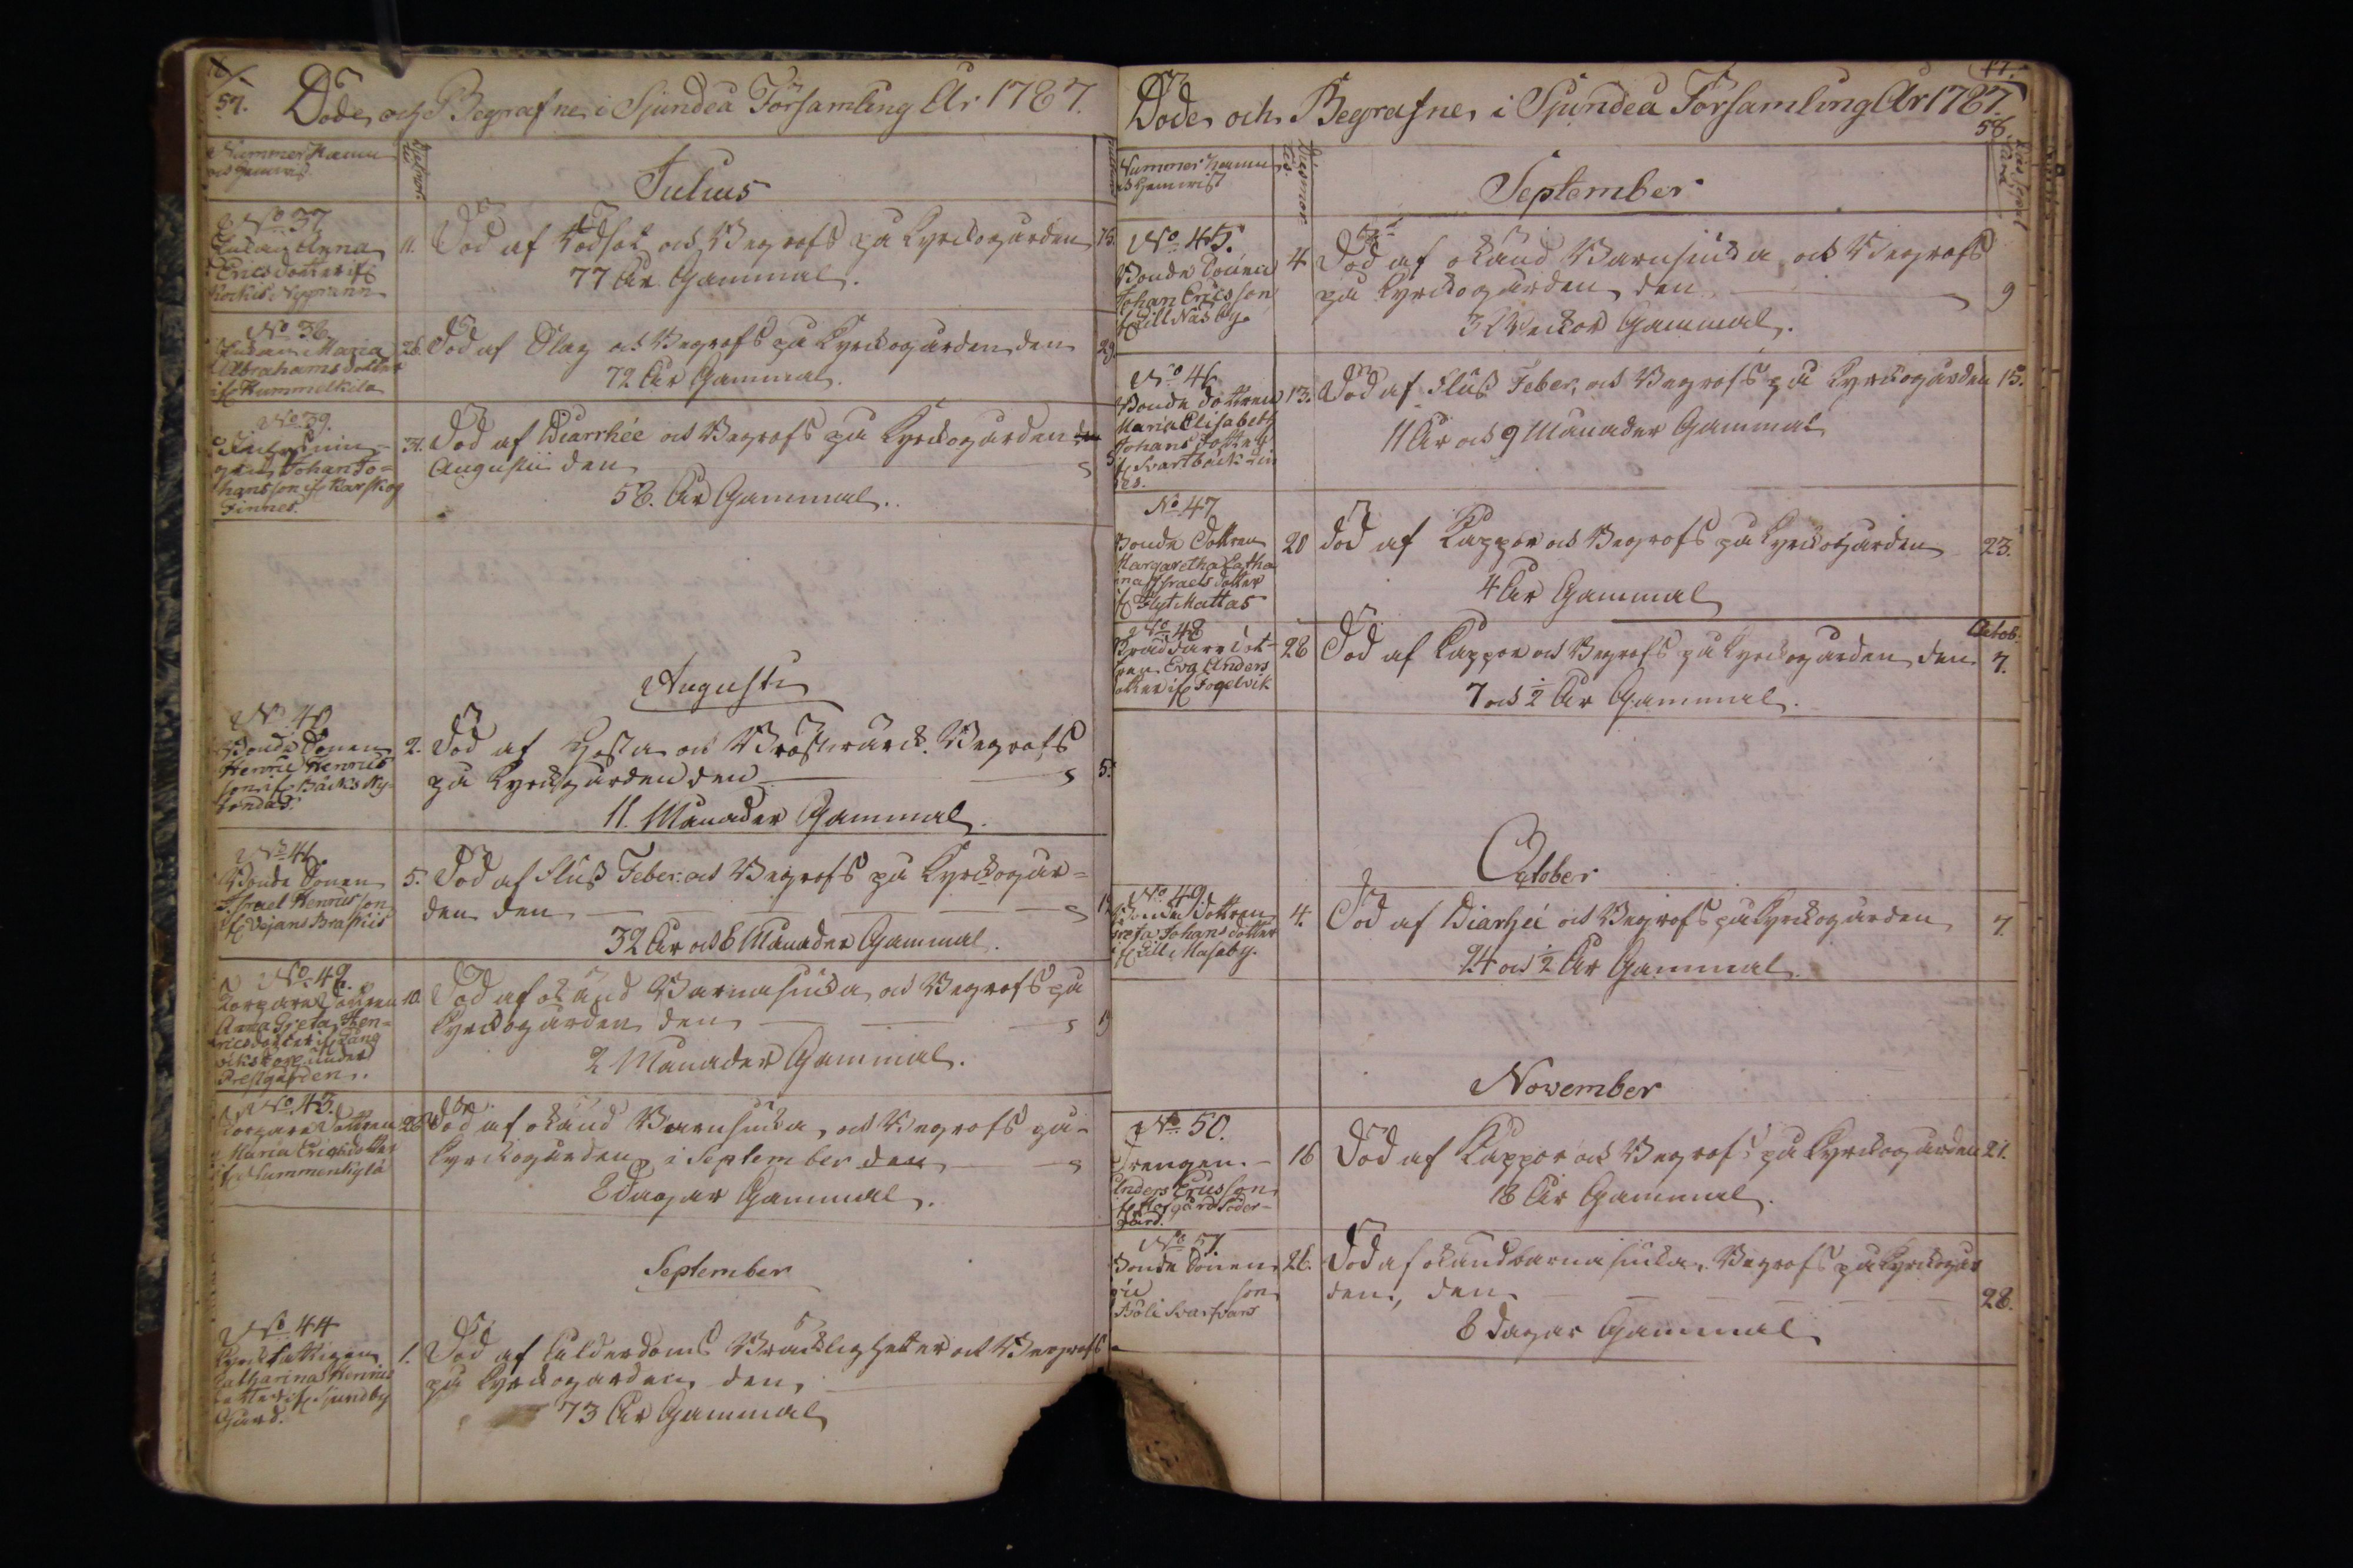 57.
Döde och Begrafne i Sjundeå Församling År 1787.
Nummer Namn
och Hemvist
Julius
No 37
Enkan Anna
Ericsdotter if
Nygrann
11. Död af Rödsot och Begrofs på Kyrckogården 15.
77 År Gammal.
No 38
Enkan Maria
Abrahams dotter
if Hummelkila
26. Död af Slag och Begrofs på Kyrckogården den 29.
72 År Gammal.
No 39.
Johan Jo=
hansson if Karskog
Finnes.
31. Död af Diarrhée och Begrofs på Kyrckogården
Augustii den 5
58. År Gammal.
Augusti
No 40
Bonde Sonen
Henric Henrics
son if Bäcks Ny-
2. Död af Hosta och Bröstwärck. Begrofs
på Kyrckogården den 5.
11. Månader Gammal.
No 41.
Bonde Sonen
Israel Henricsson
if Vejans Braskis
5. Död af Fluss Feber. och Begrofs på Kyrckogår=
den den 12
32 År och 6 Månader Gammal.
No 42.
Torpare Dottren
Anna Greta Hen=
ricsdotter if Lång
vikstorp under
Prestgården.
10. Död af okänd Barnasiucka och Begrofs på
Kyrckogården den 19
2 Månader Gammal.
No 43.
Torpare Dottren
Maria Ericsdotter
if Nummenkylä
28. Död af okänd Barnsiucka, och Begrofs på
Kyrckogården i September den
8 dagar Gammal.
September
No 44
Kyrckfattigen
Catharina Henrics
dotter if Sjundby
Gård.
1. Död af Ålderdoms Bräcklighetter och Begrofs
på Kyrckogården den,
73 År Gammal
17.
Döde och Begrafne i Sjundeå Församling År 1787.
58.
Nummer Namn
och Hemvist
September
No 45.
Bonde Sonen
Johan Ericsson
if Lill Näsby.
4 Död af okänd Barnsiucka och Begrofs
på Kyrckogården den 9
3 Weckor Gammal.
No 46
Bonde dottren
Maria Elisabeth
Johans dotter
if Svartbäck Lin
des.
13. Död af Fluss Feber, och Begrofs på Kyrckogården 15.
11 År och 9 Månader Gammal
No 47
Bonde Dottren
Margaretha Catha
rina Israels dotter
if Flyt Mattas
20 död af Kåppor och Begrofs på Kyrckogården 23.
4 År Gammal
No 48
Eva Anders
dotter if Fogelvik
28 Död af Kåppor och Begrofs på Kyrckogården den Octob. 7.
7 och ½ År Gammal.
October
No 49.
Bonde dottren
Greta Johans dotter
if Lill
4. Död af Diarhéi och Begrofs på Kyrckogården 7.
24 och ½ År Gammal.
November
No 50.
Drengen
Anders Ericsson
if Morgård Söder-
gård.
16 Död af Kåppor och Begrofs på Kyrckogården 21.
18 År Gammal.
No 51.
Bonde Sonen
son
Böli Svarfvars
26. Död af okänd barnasiucka. Begrofs på Kyrckogår
den, den 28.
8 dagar Gammal